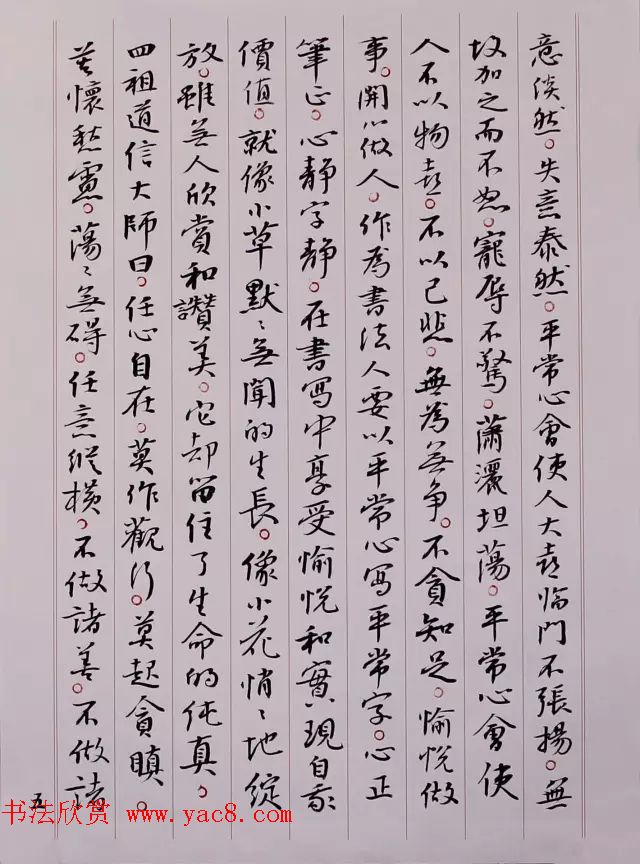 意淡然。失意泰然。平常心會使人大喜临門不張揚。無
故加之而不怒。寵辱不驚。蕭灑坦蕩。平常心會使
人不以物喜。不以己悲。無為无争。不貪知足。愉悦做
事。開心做人。作為書法人要以平常心寫平常字。心正
筆正。心靜字靜。在書寫中享受愉悦和實現自我
價值。就像小草默〻無聞的生長。像小花悄〻地綻
放。雖無人欣賞和讚美。它却留住了生命的纯真。
四祖道信大師曰。任心自在。莫作觀行。莫起貪瞋。
莫懷愁慮。蕩〻無碍。任意縱横。不做諸善。不做諸
五
书法欣赏 www.yac8.com